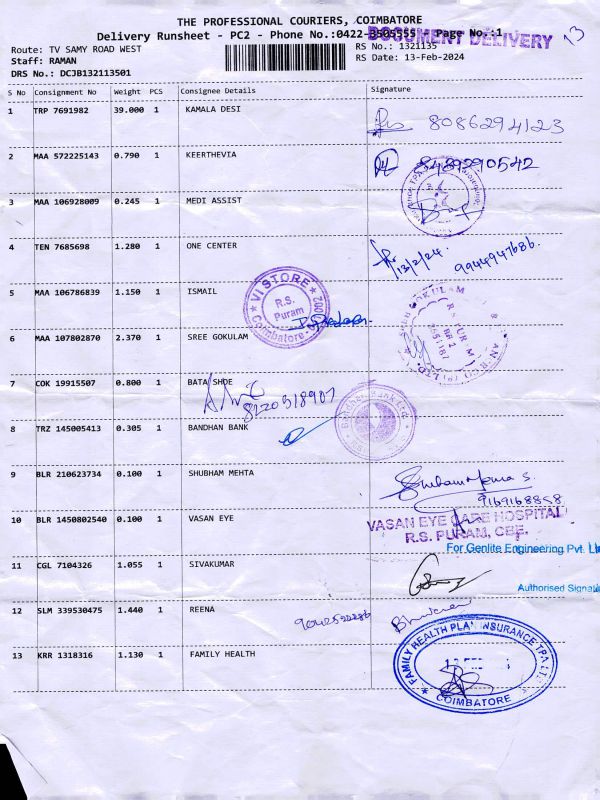 THE PROFESSIONAL COURIERS, COIMBATORE
Delivery Runsheet - PC2 - Phone No.:0422-3505555 - Page No.:1
DOCUMENT DELIVERY
13
Route: TV SAMY ROAD WEST
RS No.: 1321135
Staff: RAMAN
RS Date: 13-Feb-2024
DRS No.: DCJB132113501
S No Consignment No Weight PCS Consignee Details Signature
1 TRP 7691982 39.000 1 KAMALA DESI
8086294123
2 MAA 572225143 0.790 1 KEERTHEVIA
8489290542
3 MAA 106928009 0.245 1 MEDI ASSIST
4 TEN 7685698 1.280 1 ONE CENTER
13/2/24 9944947686.
5 MAA 106786839 1.150 1 ISMAIL
VI STORE
R.S. Puram
Coimbatore
6 MAA 107802870 2.370 1 SREE GOKULAM
7 COK 19915507 0.800 1 BATA SHOE
8220318907
8 TRZ 145005413 0.305 1 BANDHAN BANK
Bandhan Bank Ltd.
9 BLR 210623734 0.100 1 SHUBHAM MEHTA
9169168858
10 BLR 1450802540 0.100 1 VASAN EYE
VASAN EYE CARE HOSPITAL
R.S. PURAM, CBE.
For Genlite Engineering Pvt. Lt
11 CGL 7104326 1.055 1 SIVAKUMAR
Authorised Signa
12 SLM 339530475 1.440 1 REENA
13 KRR 1318316 1.130 1 FAMILY HEALTH
FAMILY HEALTH PLAN INSURANCE TPA LTD
COIMBATORE